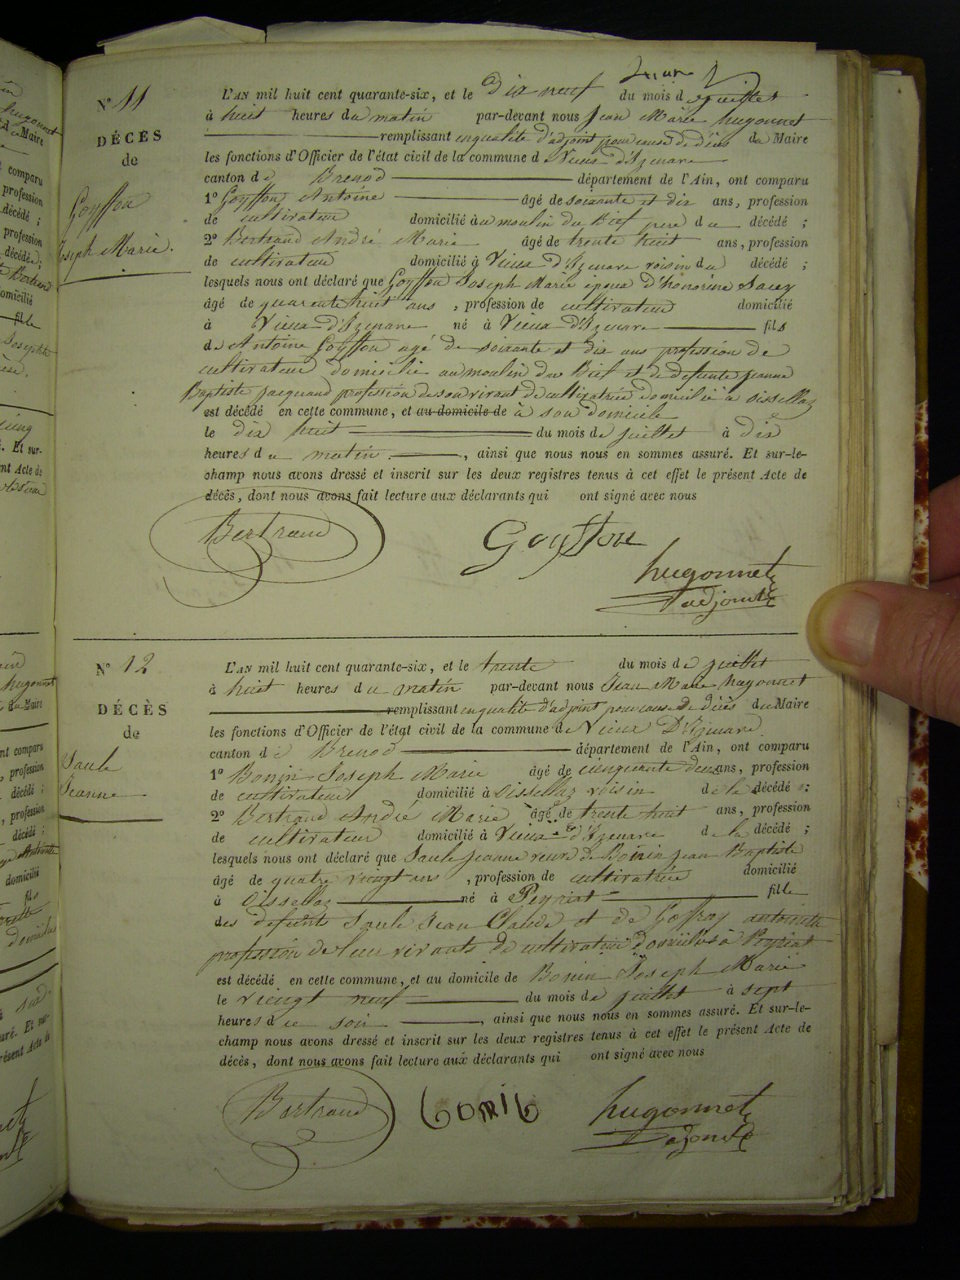 N° 11
DÉCÈS
de
Goyffon
Joseph Marie.
L'AN mil huit cent quarante-six, et le dix neuf du mois de juillet
à huit heures du matin par-devant nous Jean Marie hugonnet
remplissant en qualité d'adjoint pour cause de décès du Maire
les fonctions d'Officier de l'état civil de la commune de Vieux d'Izenave
canton de Brenod département de l'Ain, ont comparu
1° Goyffon Antoine âgé de soixante et dix ans, profession
de cultivateur domicilié au moulin du Bief pere du décédé ;
2° Bertrand André Marie âgé de trente huit ans, profession
de cultivateur domicilié à Vieux d'Izenave voisin du décédé ;
lesquels nous ont déclaré que Goyffon Joseph Marie epoux d'honorine
âgé de quarente huit ans , profession de cultivateur domicilié
à Vieux d'Izenave né à Vieux d'Izenave fils
de Antoine Goyffon agé de soixante et dix ans profession de
cultivateur domicilié au moulin du Bief et de defunte jeanne
Baptiste jacquand profession de son vivant de cultivatrice domicilié à oissellaz
est décédé en cette commune, et au domicile de à son domicile
le dix huit du mois de juillet à dix
heures du matin , ainsi que nous nous en sommes assuré. Et sur-le-
champ nous avons dressé et inscrit sur les deux registres tenus à cet effet le présent Acte de
décès, dont nous avons fait lecture aux déclarants qui ont signé avec nous
Bertrand Goyffon
hugonnet
adjoint
N° 12
DÉCÈS
de
Saule
Jeanne
L'AN mil huit cent quarante-six, et le trente du mois de juillet
à huit heures du matin par-devant nous Jean Marie hugonnet
remplissant en qualité d'adjoint pour cause de décès du Maire
les fonctions d'Officier de l'état civil de la commune de Vieux D'Izenave
canton de Brenod département de l'Ain, ont comparu
1° Bonin Joseph Marie âgé de cinquante deux ans, profession
de cultivateur domicilié à oissellaz voisin de la décédé ;
2° Bertrand André Marie âgé de trente huit ans, profession
de cultivateur domicilié à Vieux d'Izenave de la décédé ;
lesquels nous ont déclaré que Saule jeanne veuve de Bonin jean Baptiste
âgé de quatre vingt ans , profession de cultivatrice domicilié
à oissellaz né à Peyriat fille
des defunts Saule Jean Claude et de Goffroy antoinette
profession de leur vivants de cultivateur domiciliés à Peyriat
est décédé en cette commune, et au domicile de Bonin Joseph Marie
le vingt neuf du mois de juillet à sept
heures du soir , ainsi que nous nous en sommes assuré. Et sur-le-
champ nous avons dressé et inscrit sur les deux registres tenus à cet effet le présent Acte de
décès, dont nous avons fait lecture aux déclarants qui ont signé avec nous
Bertrand Bonin hugonnet
adjoint